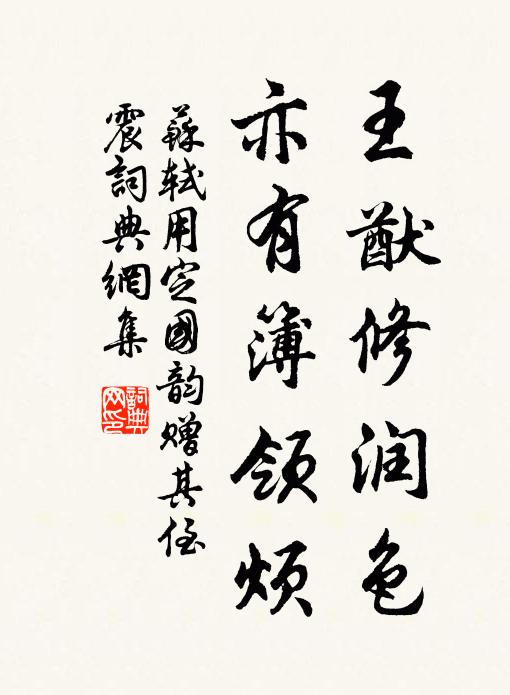 王猷修润色
亦有簿领烦
蘇軾用定國韵赠其侄
震詞典網集
詞典
网印